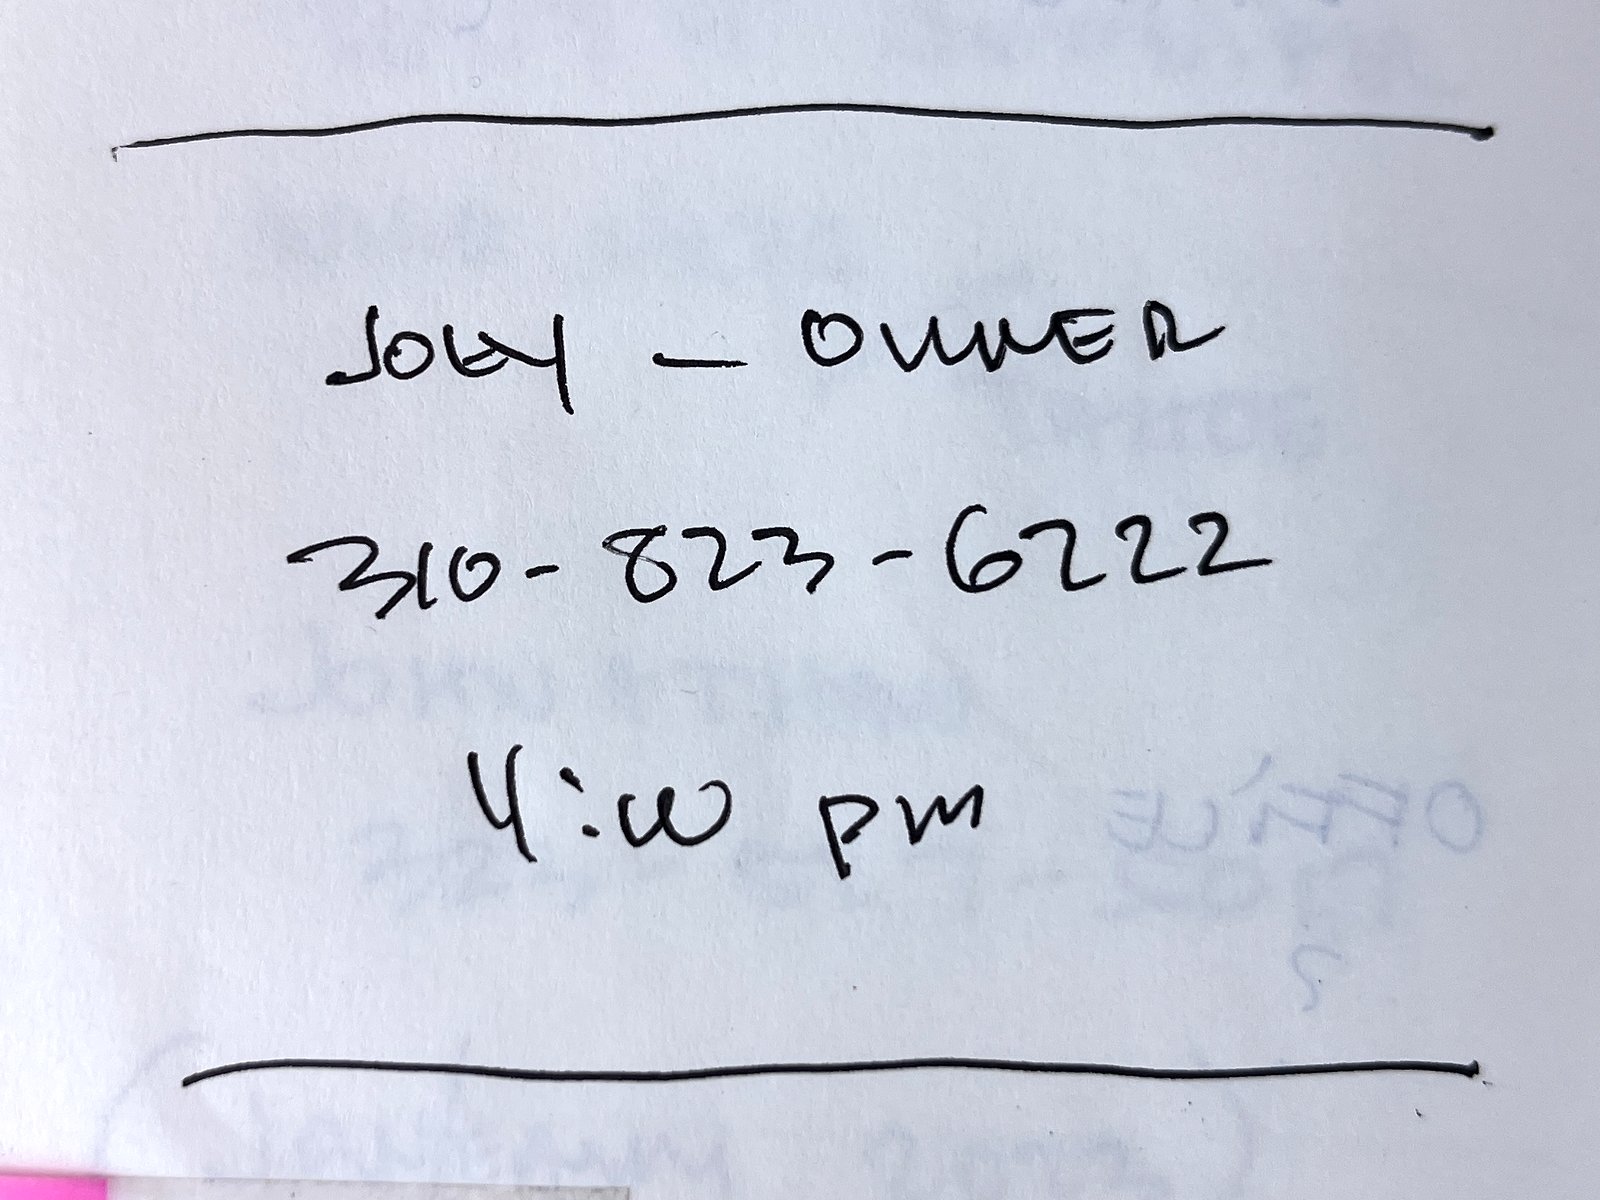 JOEY - OWNER
310-823-6222
4:00 pm
OFFICE
?